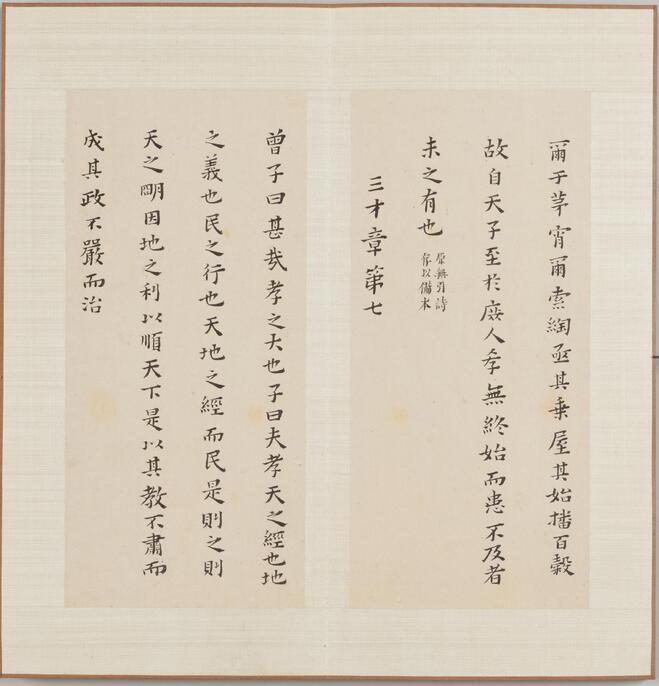 爾于茅宵爾索綯亟其乗屋其始播百穀
故自天子至於庶人孝無終始而患不及者
未之有也
原無引詩
存以備
三才章第七
曾子曰甚哉孝之大也子曰夫孝天之經也地
之義也民之行也天地之經而民是則之則
天之朙因地之利以順天下是以其教不肅而
成其政不嚴而治